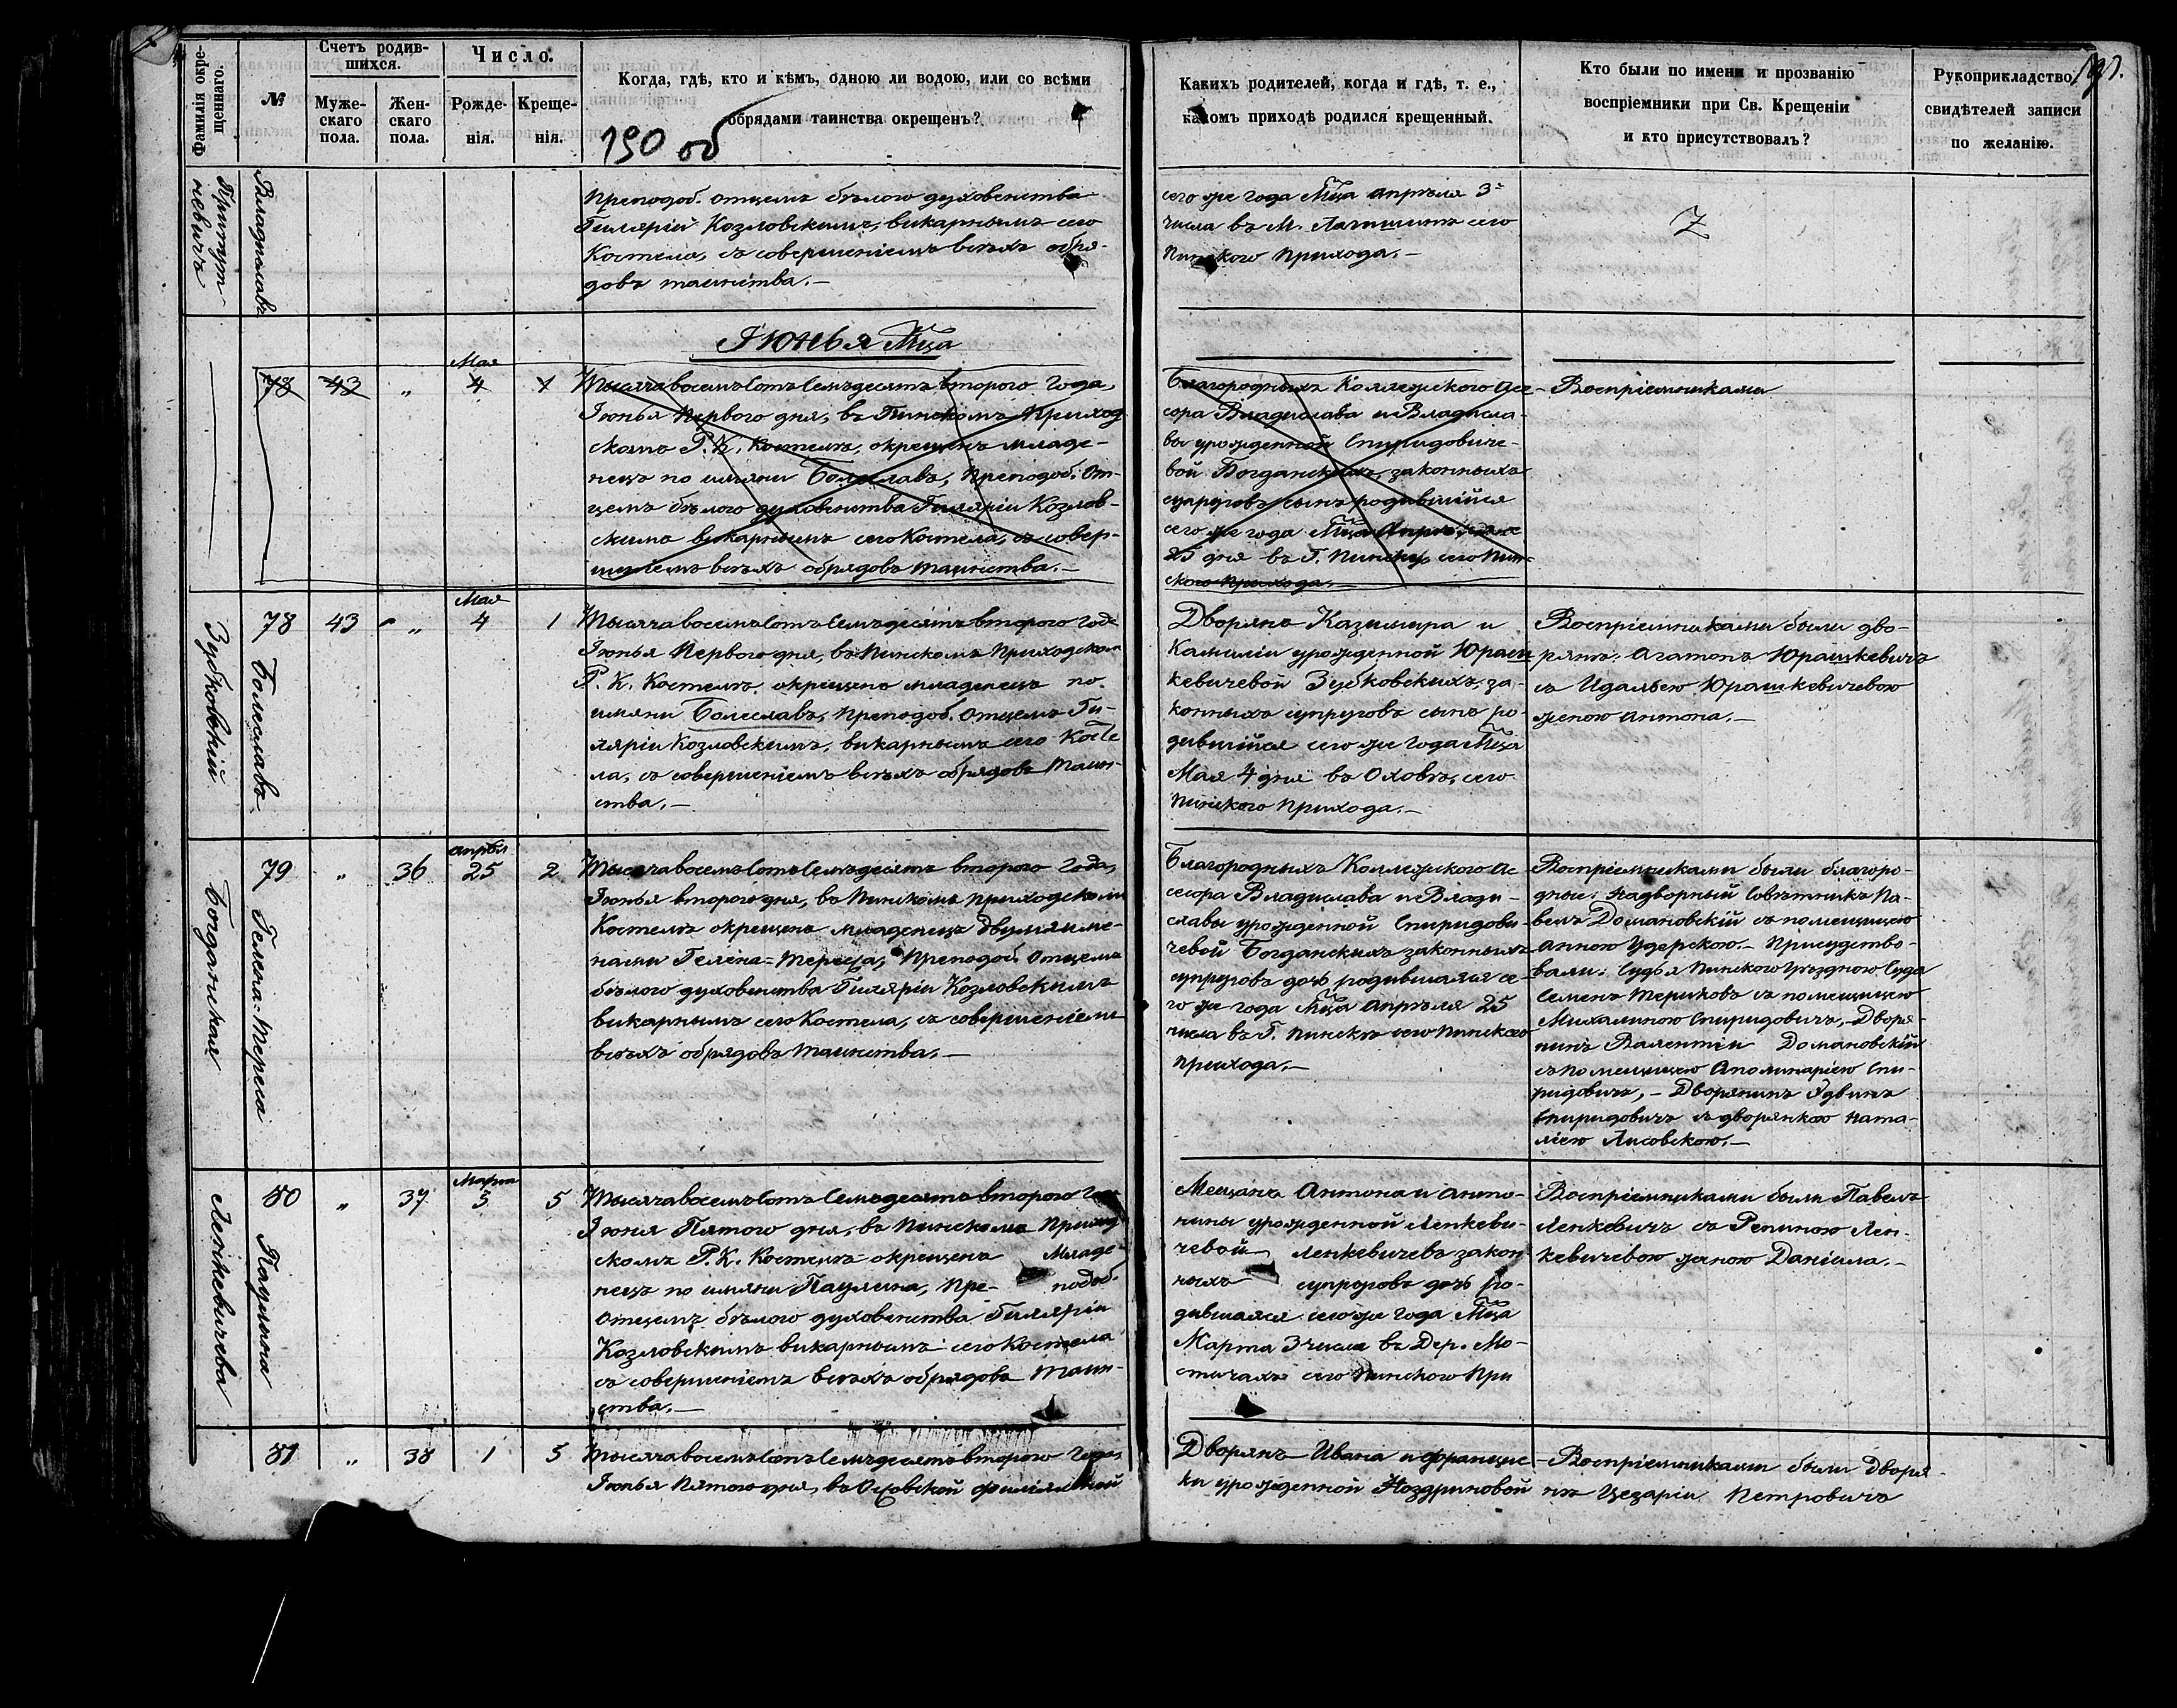 Фамилія окре-
щеннаго.
№
Счетъ родив-
шихся.
Муже-
скаго
пола.
Жен-
скаго
пола.
Число.
Рожде-
нія.
Креще-
нія.
Когда, гдѣ, кто и кѣмъ, одною ли водою, или со всѣми
обрядами таинства окрещенъ?
190 об
Какихъ родителей, когда и гдѣ, т. е.,
какомъ приходѣ родился крещенный.
Кто были по имени и прозванію
воспріемники при Св. Крещеніи
и кто присутствовалъ?
Рукоприкладство
свидѣтелей записи
по желанію.
191.
Владиславъ
Преподоб. отцемъ бѣлого духовенства
Гиляріи Козловскимъ, викарнымъ сего
Костела, съ совершеніемъ всѣхъ обря-
довъ таинства.—
сего же года Мца Апрѣля 3
числа въ М. сего
Пинского Прихода.—
Іюнья Мца
78
43
"
Мая
4
1
Тысяча восемьсотъ семьдесятъ второго года,
Іюнья Первого дня, въ Пинскомъ Приход
скомъ Р. К. Костелѣ, окрещенъ младе-
нецъ по имяни Болеславъ, Преподоб. От-
цемъ бѣлого духовенства Гиляріи Козлов-
скимъ викарнымъ сего Костела, съ совер-
шеніемъ всѣхъ обрядовъ таинства.—
Благородныхъ Коллежского Асе-
сора Владислава и Владисла-
вы урожденной Спиридовиче-
вой Богданскихъ, законныхъ
супруговъ сынъ родившійся
сего же года Мца
25 дня въ Г. Пинску сего Пин-
ского Прихода.—
Воспріемниками
Зубковскій
78 Болеславъ
43
"
Мая
4
1
Тысяча восемьсотъ семьдесятъ второго года
Іюнья Первого дня, въ Пинскомъ Приходском
Р. К. Костелѣ окрещенъ младенецъ по
имяни Болеславъ, Преподоб. Отцемъ Ги-
ляріи Козловскимъ, викарнымъ сего Косте
ла, съ совершеніемъ всѣхъ обрядовъ Таин-
ства.—
Дворянъ Казимира и
Камиліи урожденной Юраш
кевичевой Зубковскихъ, за-
конныхъ супруговъ сынъ ро-
дившійся сего же года Мца
Мая 4 дня въ Оховѣ, сего
Пинского Прихода.—
Воспріемниками были дво-
рянъ: Агатонъ Юрашкевичъ
съ Идальею Юрашкевичевою
женою Антона.—
Богданская
79 Гелена=Тереса
"
36
Апрѣл
25
2
Тысяча восемьсотъ семьдесятъ второго года,
Іюнья второго дня, въ Пинскомъ Приходскомъ
Костелѣ окрещенъ младенецъ двумя име-
нами Гелена=Тереса, Преподоб. Отцемъ
бѣлого духовенства Гиляріи Козловскимъ
викарнымъ сего Костела, съ совершеніемъ
всѣхъ обрядовъ Таинства.—
Благородныхъ Коллежского Ас
сесора Владислава и Влади-
славы урожденной Спиридови
чевой Богданскихъ законныхъ
супруговъ дочь родившаяся се-
го же года Мца Апрѣля 25
числа въ Г. Пинскѣ сего Пинского
Прихода.—
Воспріемниками были благоро-
дные: Надворный Совѣтникъ Па-
велъ Домановскій съ помещицею
Анною Удерскою.— Присудство-
вали: Судья Пинского Уѣздного Суда
Семенъ съ помещицею
Михалиною Спиридовичъ,— Дворя-
нинъ Валентіи Домановскій
съ помещицею Аполинаріею Спи-
ридовичъ,— Дворянинъ Эдвинъ
Спиридовичъ съ дворянкою Ната-
ліею Лисовскою.—
Ленкевичева
80 Паулина
"
37
Марта
3
5
Тысяча восемьсотъ семьдесятъ второго Года
Іюня Пятого дня, въ Пинскомъ Приход
скомъ Р. К. Костелѣ окрещенъ Младе-
нецъ по имяни Паулина, Пре- подоб.
Отцемъ бѣлого духовенства Гиляріи
Козловскимъ викарнымъ сего Костела
съ совершеніемъ всѣхъ обрядовъ Таин-
ства.—
Мещанъ Антона и Анто-
нины урожденной Ленкеви-
чевой Ленкевичевъ закон
ныхъ супруговъ дочь ро-
дившаяся сего же года Мца
Марта 3 числа въ Дер. Мо-
стичахъ сего Пинского При
Воспріемниками были Павелъ
Ленкевичъ съ Региною Лен-
кевичевою женою Даніила.—
81
"
38
1
5
Тысяча восемьсотъ семьдесятъ второго года,
Іюнья Пятого дня, въ Оховской филіяльной
Дворянъ Ивана и Францис-
ки урожденной Ноздриновой
Воспріемниками были Дворя-
нъ Цезаріи Петровичъ